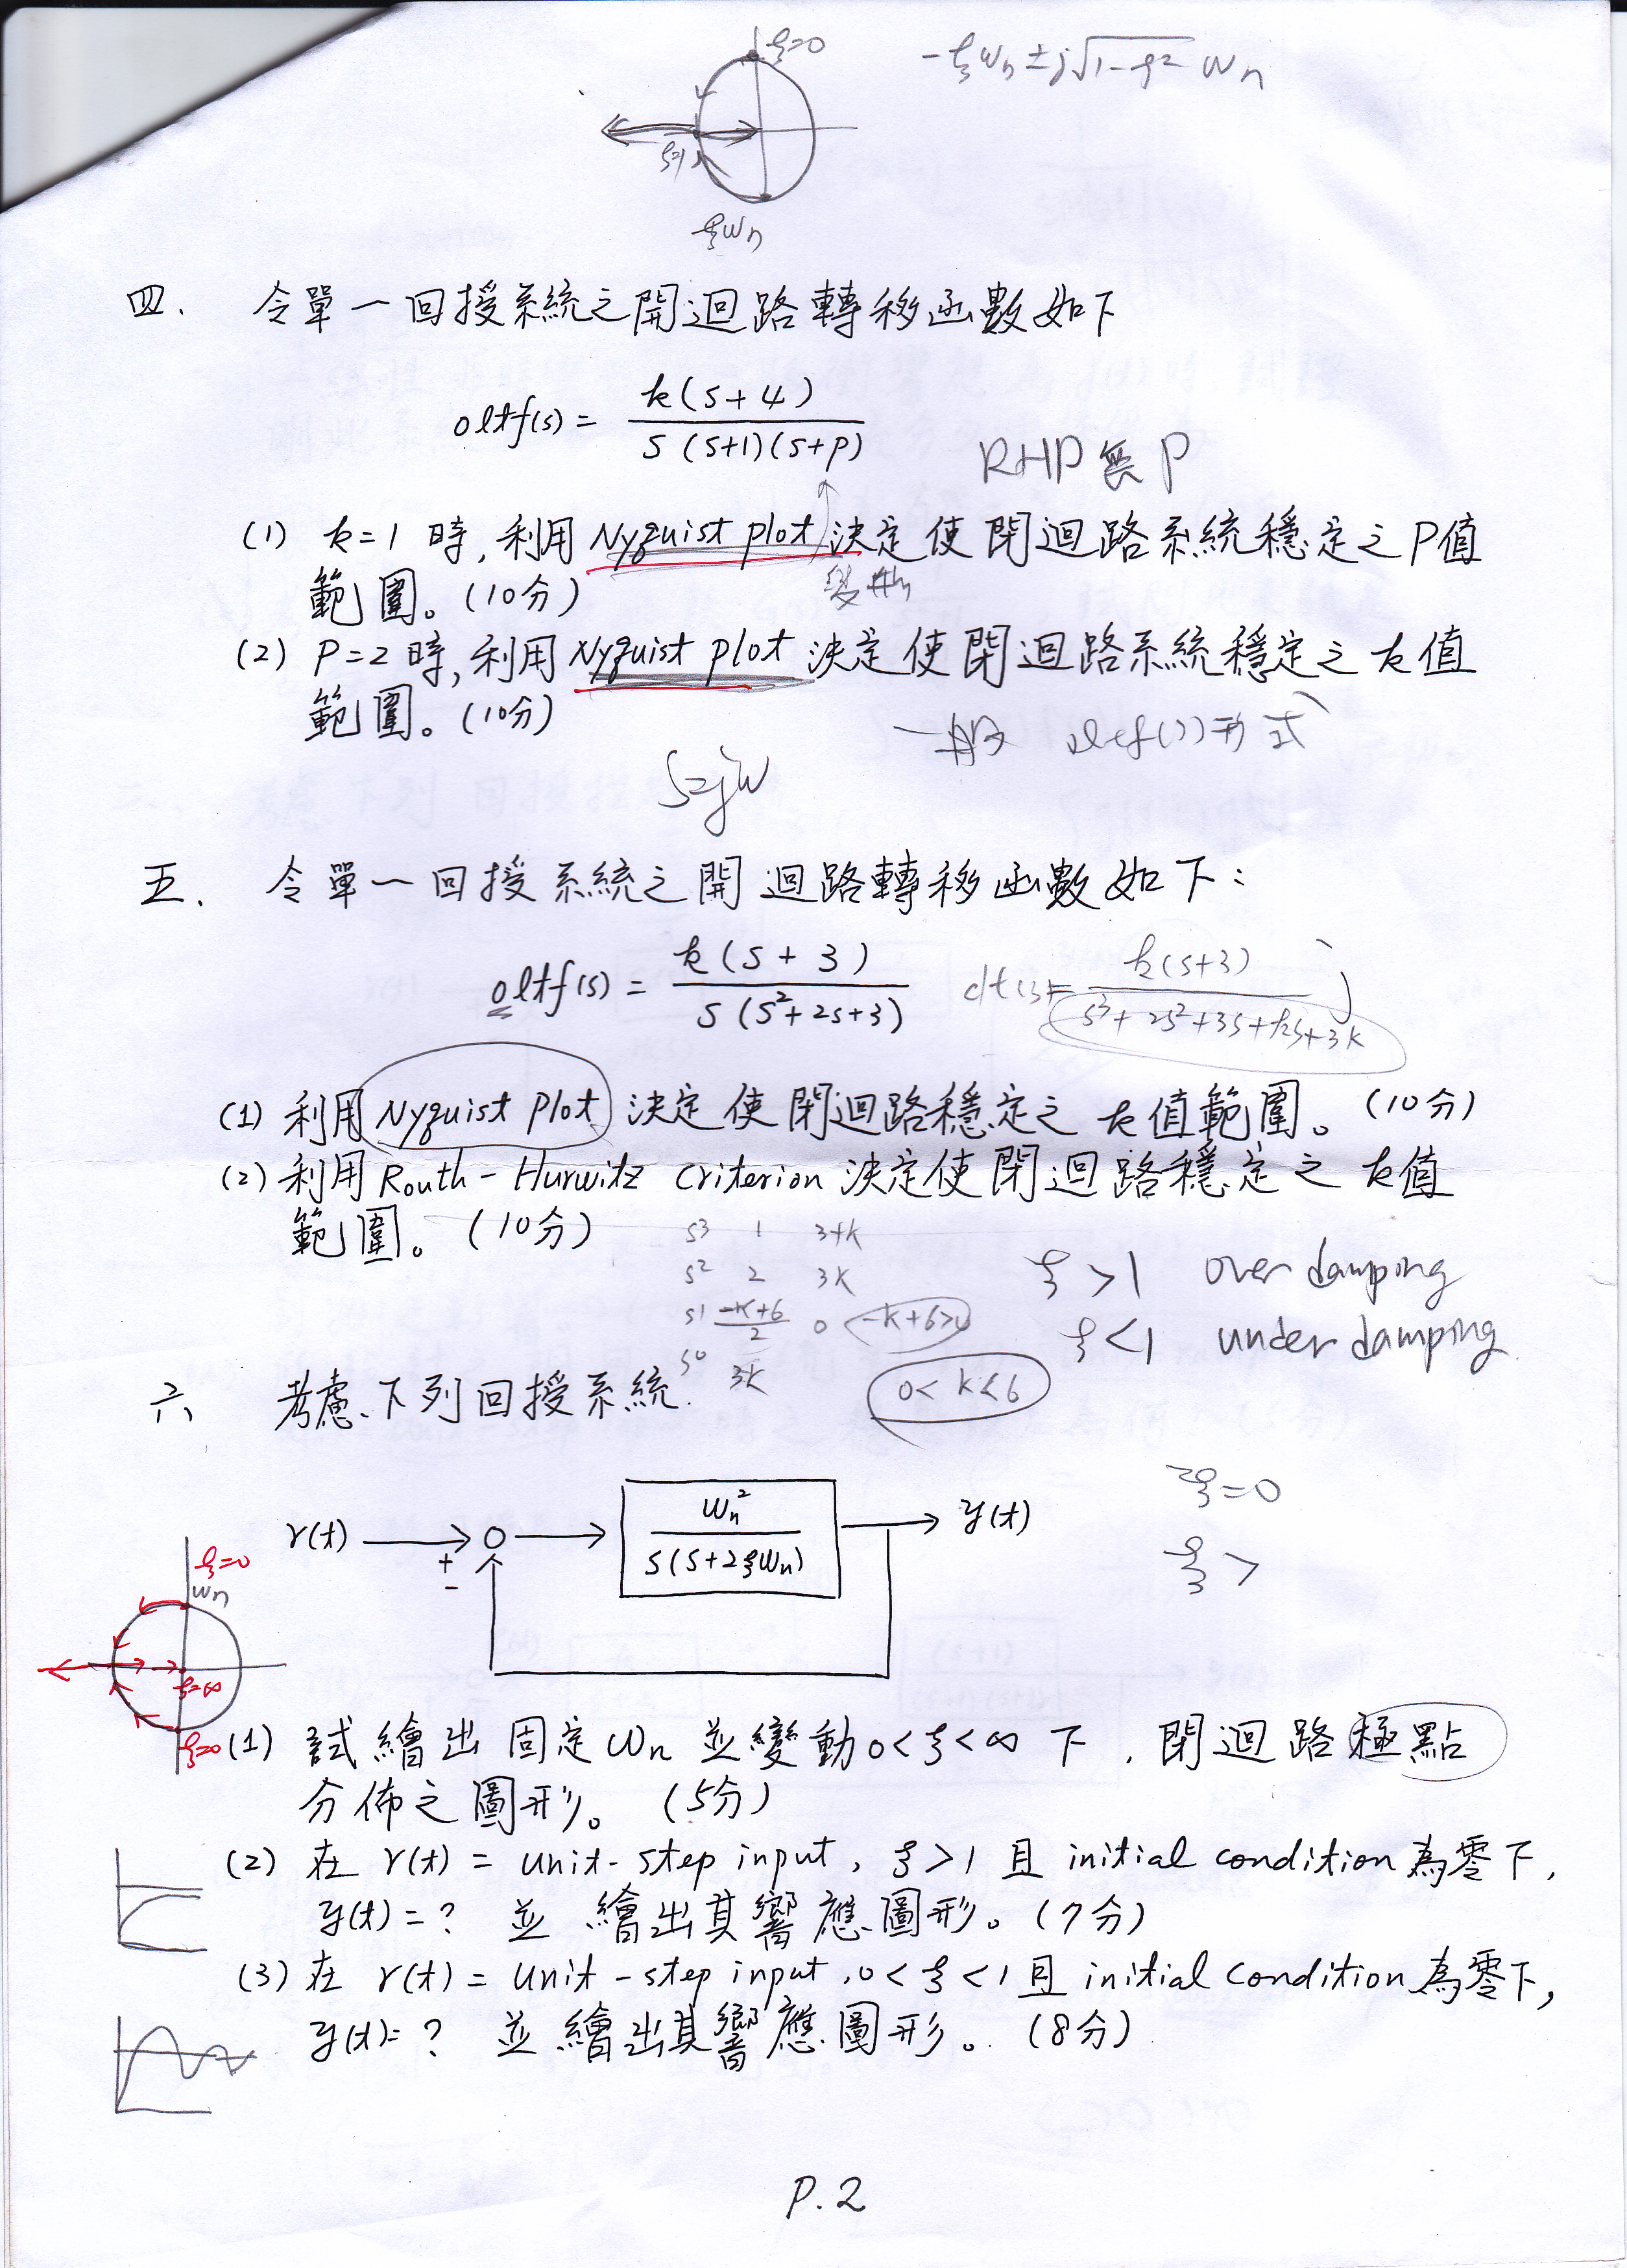 ξ=0
-ξωn ± j√1-ξ² ωn
ξ=1
ξωn
四. 令單一回授系統之開迴路轉移函數如下
oltf(s) = k(s+4) / s(s+1)(s+p)
RHP 無 P
(1) k=1 時, 利用 Nyquist plot 決定使閉迴路系統穩定之 P值
範圍。(10分)
變化
(2) P=2 時, 利用 Nyquist plot 決定使閉迴路系統穩定之 k 值
範圍。(10分)
一般 oltf(s) 形式
s=jω
五. 令單一回授系統之開迴路轉移函數如下:
oltf(s) = k(s+3) / s(s²+2s+3)
k(s+3) / s³+2s²+3s+ks+3k
(1) 利用 Nyquist plot 決定使閉迴路穩定之 k 值範圍。(10分)
(2) 利用 Routh-Hurwitz Criterion 決定使閉迴路穩定之 k 值
範圍。(10分)
s³ 1 3+k
s² 2 3k
s¹ -k+6 / 2 0 -k+6>0
s⁰ 3k
0<k<6
ξ>1 over damping
ξ<1 under damping
六 考慮下列回授系統.
ξ=0
ξ>
r(t)
+
-
ωn² / s(s+2ξωn)
y(t)
ξ=0
ωn
ξ=∞
ξ=0
(1) 試繪出固定 ωn 並變動 0<ξ<∞ 下, 閉迴路極點
分佈之圖形。(5分)
(2) 在 r(t) = unit-step input, ξ>1 且 initial condition 為零下,
y(t)=? 並繪出其響應圖形。(7分)
(3) 在 r(t) = unit-step input, 0<ξ<1 且 initial condition 為零下,
y(t)=? 並繪出其響應圖形。(8分)
P.2